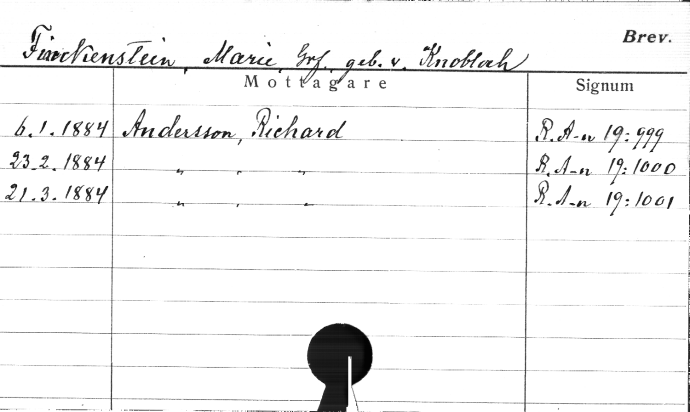 Brev.
Finckenstein, Marie, Grf. geb. v. Knobloch
Mottagare Signum
6.1.1884 Andersson, Richard R.A-n 19:999
23.2.1884 „ , „ R.A-n 19:1000
21.3.1884 „ , „ R.A-n 19:1001